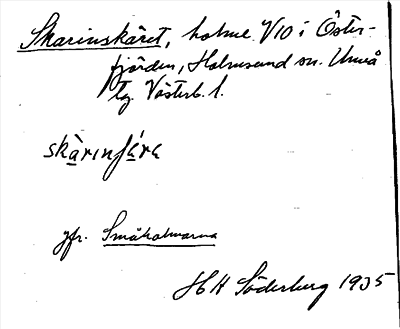 Skarinskäret, holme V10 i Öster-
fjärden, Holmsund sn. Umeå
tg. Västerb. l.
jfr. Småholmarna
H H Söderberg 1935